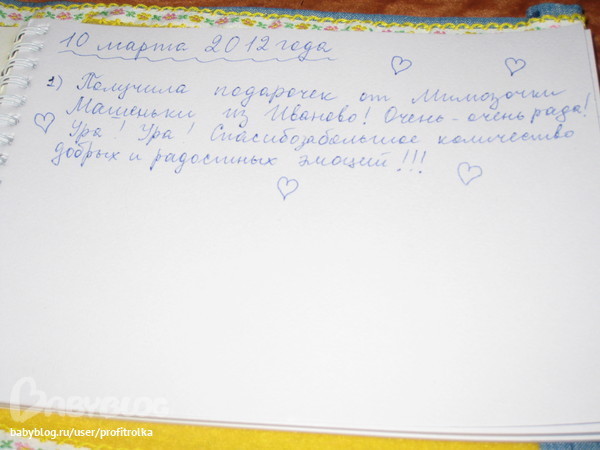 10 марта 2012 года
1) Получила подарочек от Мимозочки
Машеньки из Иваново! Очень-очень рада!
Ура! Ура! Спасибо за большое количество
добрых и радостных эмоций!!!
BABYBLOG
babyblog.ru/user/profitrolka